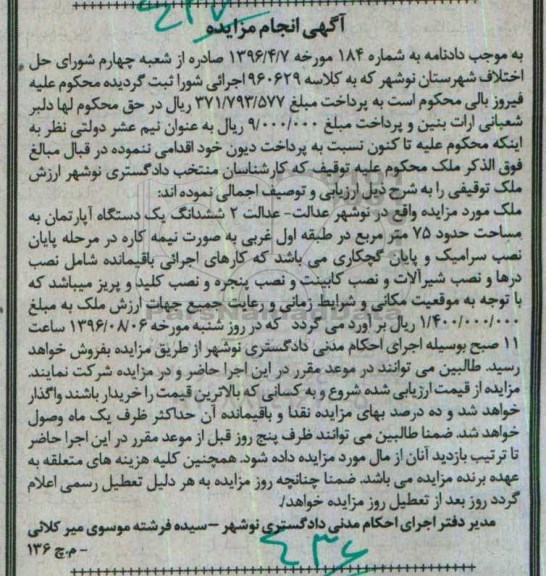 آگهی انجام مزایده
به موجب دادنامه به شماره ۱۸۴ مورخه ۱۳۹۶/۴/۷ صادره از شعبه چهارم شورای حل
اختلاف شهرستان نوشهر که به کلاسه ۹۶۰۶۲۹ اجرائی شورا ثبت گردیده محکوم علیه
فیروز بالی محکوم است به پرداخت مبلغ ۳۷۱/۷۹۳/۵۷۷ ریال در حق محکوم لها دلبر
شعبانی ارات بنین و پرداخت مبلغ ۹/۰۰۰/۰۰۰ ریال به عنوان نیم عشر دولتی نظر به
اینکه محکوم علیه تا کنون نسبت به پرداخت دیون خود اقدامی ننموده در قبال مبالغ
فوق الذکر ملک محکوم علیه توقیف که کارشناسان منتخب دادگستری نوشهر ارزش
ملک توقیفی را به شرح ذیل ارزیابی و توصیف اجمالی نموده اند:
ملک مورد مزایده واقع در نوشهر عدالت- عدالت ۲ ششدانگ یک دستگاه آپارتمان به
مساحت حدود ۷۵ متر مربع در طبقه اول غربی به صورت نیمه کاره در مرحله پایان
نصب سرامیک و پایان گچکاری می باشد که کارهای اجرائی باقیمانده شامل نصب
درها و نصب شیرآلات و نصب کابینت و نصب پنجره و نصب کلید و پریز میباشد که
با توجه به موقعیت مکانی و شرایط زمانی و رعایت جمیع جهات ارزش ملک به مبلغ
۱/۴۰۰/۰۰۰/۰۰۰ ریال بر آورد می گردد که در روز شنبه مورخه ۱۳۹۶/۰۸/۰۶ ساعت
۱۱ صبح بوسیله اجرای احکام مدنی دادگستری نوشهر از طریق مزایده بفروش خواهد
رسید. طالبین می توانند در موعد مقرر در این اجرا حاضر و در مزایده شرکت نمایند.
مزایده از قیمت ارزیابی شده شروع و به کسانی که بالاترین قیمت را خریدار باشند واگذار
خواهد شد و ده درصد بهای مزایده نقدا و باقیمانده آن حداکثر ظرف یک ماه وصول
خواهد شد. ضمنا طالبین می توانند ظرف پنج روز قبل از موعد مقرر در این اجرا حاضر
تا ترتیب بازدید آنان از مال مورد مزایده داده شود. همچنین کلیه هزینه های متعلقه به
عهده برنده مزایده می باشد. ضمنا چنانچه روز مزایده به هر دلیل تعطیل رسمی اعلام
گردد روز بعد از تعطیل روز مزایده خواهد/.
مدیر دفتر اجرای احکام مدنی دادگستری نوشهر –سیده فرشته موسوی میر کلائی
- م.چ ۱۳۶